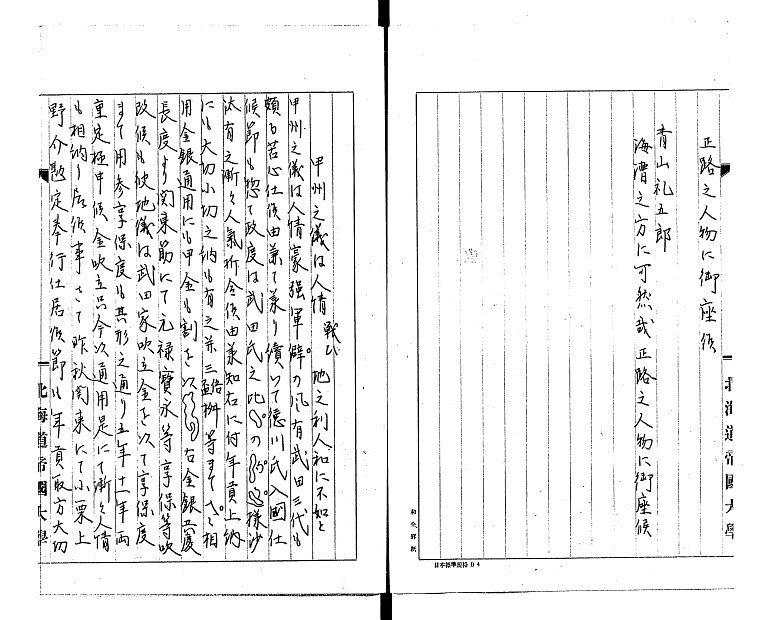 正路之人物に御座候
青山礼五郎
海漕之方に可然哉正路之人物に御座候
北海道帝國大學
和文罫紙
日本標準規格 B 4
甲州之儀は人情
戦ひ
地之利人和に不如と
甲州之儀は人情豪强軍癖の風有武田三代も
頗る苦心仕候由兼て承り續いて德川氏入國仕
候節も惣て政度は武田氏之
様沙
汰有之漸々人氣折合候由承知右に付年貢上納
にも大切小切之納も有之并三
桝等まて
相
用金銀通用にも甲金も割を以
古金銀
慶
長度より関東筋にて元禄寶永等享保等吹
改候も彼地儀は武田家吹立金を以て享保度
まて用参享保度も其形之通り五年十一年両
重定極申候金吹立只今以通用是にて漸々人情
も相納り居候事さて昨秋関東にて小栗上
野介勘定奉行仕居候節も年貢取方大切
北海道帝國大學